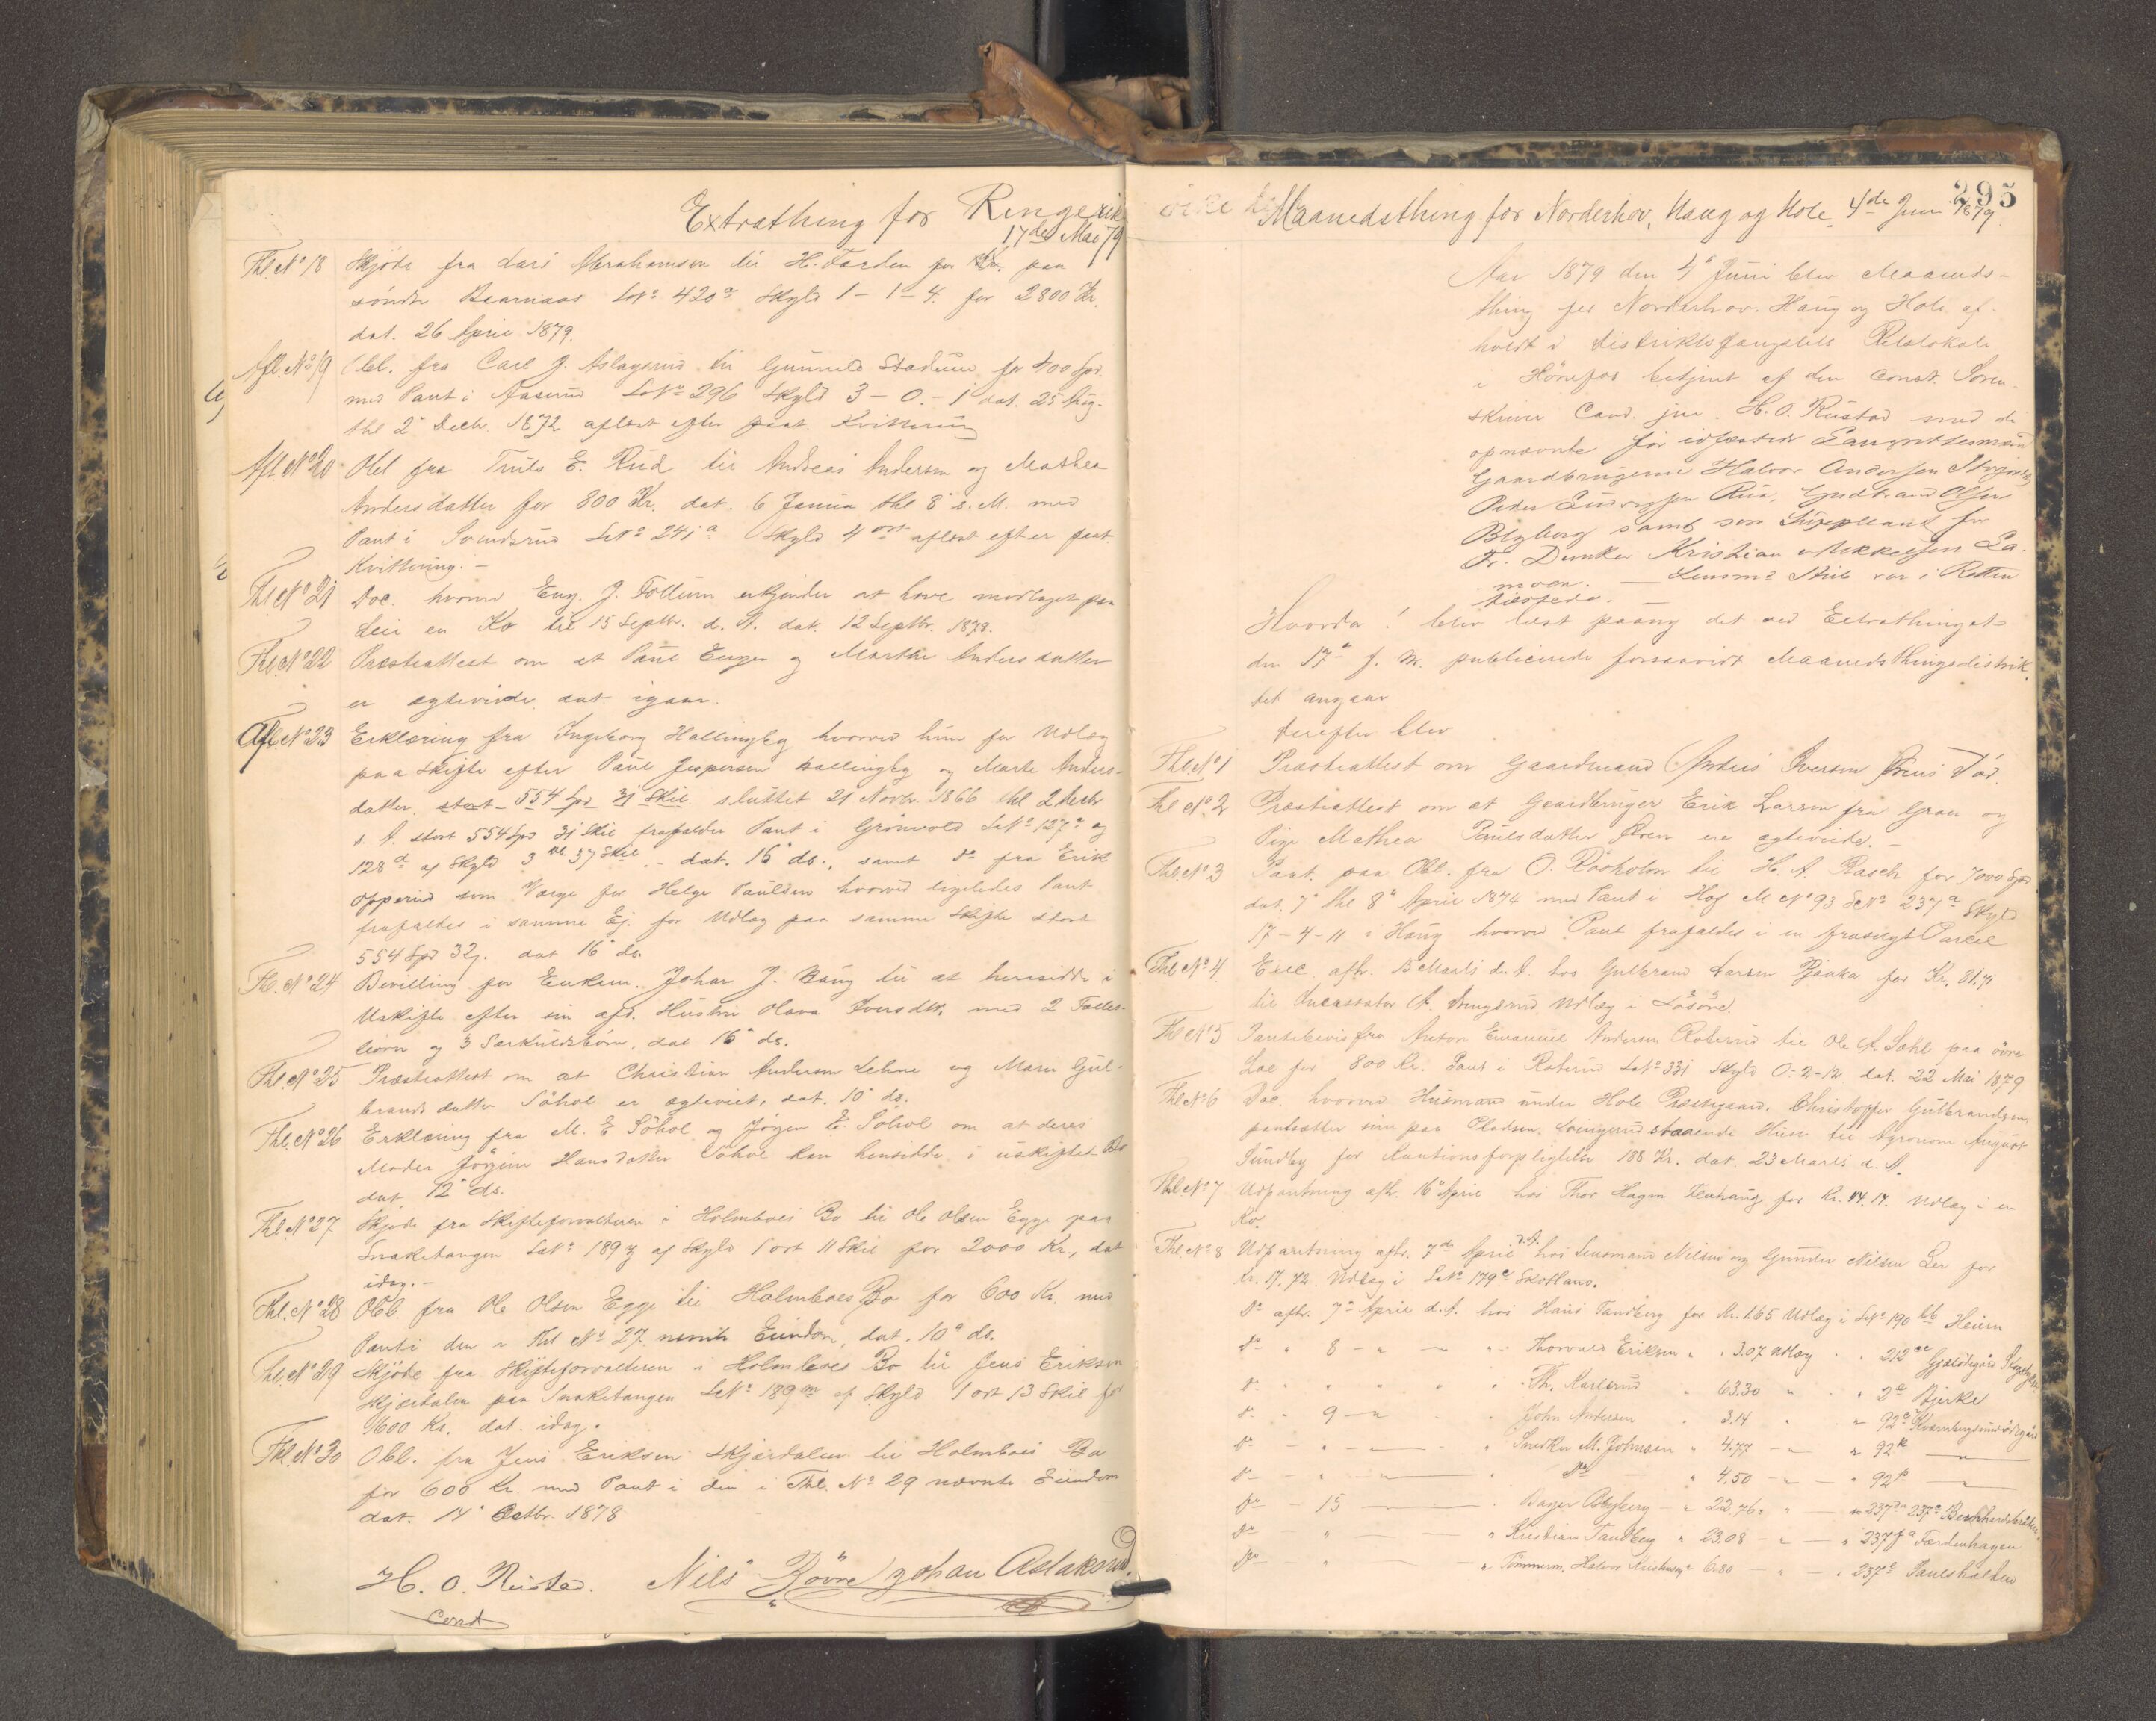 Extrathing for Ringerike
17de Mai 79
Thl. No 18 Skjöde fra Lars Abrahamsen til H. Færden for paa
söndre Baarnaas LNo 420a Skyld 1-1-4. for 2800 Kr.
dat. 26 April 1879.
Afl. No 19 Obl. fra Carl J. Aslagsrud til Gunnild Stadum for 400 Spd.
med Pant i Aasrud LNo 296 Skyld 3-0-1 dat. 25 Aug.
thl 2 Decbr. 1872 aflæst efter paat. Kvittering
Afl. No 20 Obl fra Truls E. Rud til Andreas Andersen og Mathea
Andersdatter for 800 Kr. dat. 6 Januar thl 8 s. M. med
Pant i Svendsrud LNo 241a Skyld 4 ort aflæst efter paat.
Kvittering.-
Thl. No 21 Doc. hvorved Eng. J. Follum erkjender at have modtaget paa
Leie en Ko til 15 Septbr. d. A. dat. 12 Septbr. 1878.
Thl. No 22 Præsteattest om at Paul Enger og Marthe Andersdatter
er ægteviede dat. igaar.
Afl. No 23 Erklæring fra Ingeborg Hallingby hvorved hun for Udlæg
paa Skifte efter Paul Jespersen Hallingby og Marte Anders-
datter, stort 554 Spd 31 Skil sluttet 21 Novbr. 1866 thl 2 Decbr
s. A. stort 554 Spd 31 Skil frafalder Pant i Grönvold LNo 127a og
128a af Skyld 3 37 Skil - dat. 16 ds., samt Do fra Erik
Opperud som Værge for Helge Paulsen hvorved ligeledes Pant
frafaldes i samme Ej. for Udlæg paa samme Skifte stort
554 Spd 32. dat 16 ds.
Thl. No 24 Bevilling for Enkem. Johan J. Haug til at hensidde i
Uskifte efter sin afd. Hustru Olava Iversdtr. med 2 Fælles-
börn og 3 Særkuldsbörn, dat 16 ds.
Thl. No 25 Præsteattest om at Christian Andersen Lehne og Maren Gul-
brandsdatter Söhol er ægteviet, dat. 10 ds.
Thl. No 26 Erklæring fra M. E. Söhol og Jörgen E. Söhol om at deres
Moder Jörgine Hansdatter Söhol kan hensidde i uskiftet Bo
dat 12 ds.
Thl. No 27 Skjöde fra Skifteforvalteren i Holmboes Bo til Ole Olsen Egge paa
Snaketangen LNo 189z af Skyld 1 ort 11 Skil for 2000 Kr., dat
idag.-
Thl. No 28 Obl. fra Ole Olsen Egge til Holmboes Bo for 600 Kr. med
Pant i den i Thl No 27 nævnte Eiendom, dat. 10 ds.
Thl. No 29 Skjöde fra Skifteforvalteren i Holmboes Bo til Jens Eriksen
Skjærdalen paa Snaketangen LNo 189m af Skyld 1 ort 13 Skil for
1600 Kr. dat. idag.
Thl. No 30 Obl. fra Jens Eriksen Skjærdalen til Holmboes Bo
for 600 Kr. med Pant i den i Thl. No 29 nævnte Eiendom
dat. 14 Octbr. 1878
H. O. Rustad. Nils Rövre Johan Aslaksrud.
Const
295
Maanedsthing for Norderhov, Haug og Hole 4de Juni 1879.
Aar 1879 den 4de Juni blev Maaneds-
thing for Norderhov, Haug og Hole af-
holdt i Distriktsfængslets Retslokale
i Hönefos betjent af den const. Soren-
skriver Cand. jur. H. O. Rustad med de
opnævnte för edfæstede Laugrettesmænd
Gaardbrugerne Halvor Andersen
Peder Rua, Gudbrand Olsen
Blyberg samt som Suppleant for
Fr. Dunker Kristian Mikkelsen La-
moen. - Lensmd Stub var i Retten
tilstede. -
Hvorda! blev læst paany det ved Extrathinget
den 17de f. M. publicerede forsaavidt Maanedsthingsdistrik-
tet angaar
derefter blev
Thl. No 1 Præsteattest om Gaardmand Anders Iversen Död.
Thl. No 2 Præsteattest om at Gaardbruger Erik Larsen fra Gran og
Pige Mathea Paulsdatter Öven ere ægteviede. -
Thl. No 3 Paat. paa Obl. fra O. Rösholm til H. A. Rasch for 7000 Spd
dat. 7 thl 8 April 1874 med Pant i Hog M No 93 LNo 237a Skyld
17-4-11 i Haug hvorved Pant frafaldes i en frasolgt Parcel
Thl. No 4 Exec. afh. 15 Marts d. A. hos Gulbrand Larsen Pjaaka for Kr. 81.71
til Incassator A. Udlæg i Lösöre.
Thl. No 5 Pantebevis fra Anton Emanuel Andersen Roterud til Ole A. Sæhl paa övre
Lae for 800 Kr. Pant i Roterud LNo 331 Skyld 0-2-12 dat. 22 Mai 1879
Thl. No 6 Doc. hvorved Husmand under Hole Præstegaard, Christopher Gulbrandsen
pantsætter sine paa Pladsen Svingerud staaende Huse til Agronom August
Sundby for Kautionsforpligtelse 188 Kr. dat. 23 Marts d. A.
Thl. No 7 Udpantning afh. 16 April hos Thor Hagen Flaskerud for Kr. 44.14. Udlæg i en
Ko.
Thl. No 8 Udpantning afh. 7de April d. A. hos Lensmand Nilsen og Gunder Nilsen Ler for
Kr. 17.72 Udlæg i LNo 179c Skotland.
Do afh. 7 April d. A. hos Hans Tandberg for Kr. 1.65 Udlæg i LNo 190 bb Heiern
Do " 8 - " - " Thorvald Eriksen " " 3.07 Udlæg " " 212 Gjeldsgaard
Do " " " " " Th. Karlsrud " 63.30 " " 2a Bjerke
Do " 9 - " " John Andersen " 3.14 " " 92
Do - " - " Snedker M. Johnsen " 4.77 - " " 92k - " -
Do - " - " - Do - " 4.50 - " - " 92k - " -
Do - 15 - " Bager Blyberg - " 22.76 " - " 237 237 Bernhardsbraaten
Do " - - " Kristian Tandberg " 23.08 - " - " 237f Færdenhagen
Do " - - " Tömmerm. Halvor " 6.80 - " - " 237 Paulshalden